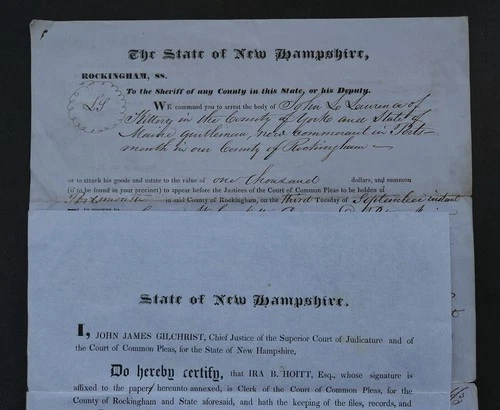 The State of New Hampshire,
ROCKINGHAM, SS.
To the Sheriff of any County in this State, or his Deputy.
LS
WE command you to arrest the body of John L Lawrence of
Kittery in the County of York and State of
Maine Gentleman, now commorant in Ports
mouth in our County of Rockingham
or to attach his goods and estate to the value of one thousand dollars, and summon
(if to be found in your precinct) to appear before the Justices of the Court of Common Pleas to be holden at
Portsmouth in said County of Rockingham, on the third Tuesday of September instant
State of New Hampshire.
I, JOHN JAMES GILCHRIST, Chief Justice of the Superior Court of Judicature and of
the Court of Common Pleas, for the State of New Hampshire,
Do hereby certify, that IRA B. HOITT, Esq., whose signature is
affixed to the paper hereunto annexed, is Clerk of the Court of Common Pleas, for the
County of Rockingham and State aforesaid, and hath the keeping of the files, records, and